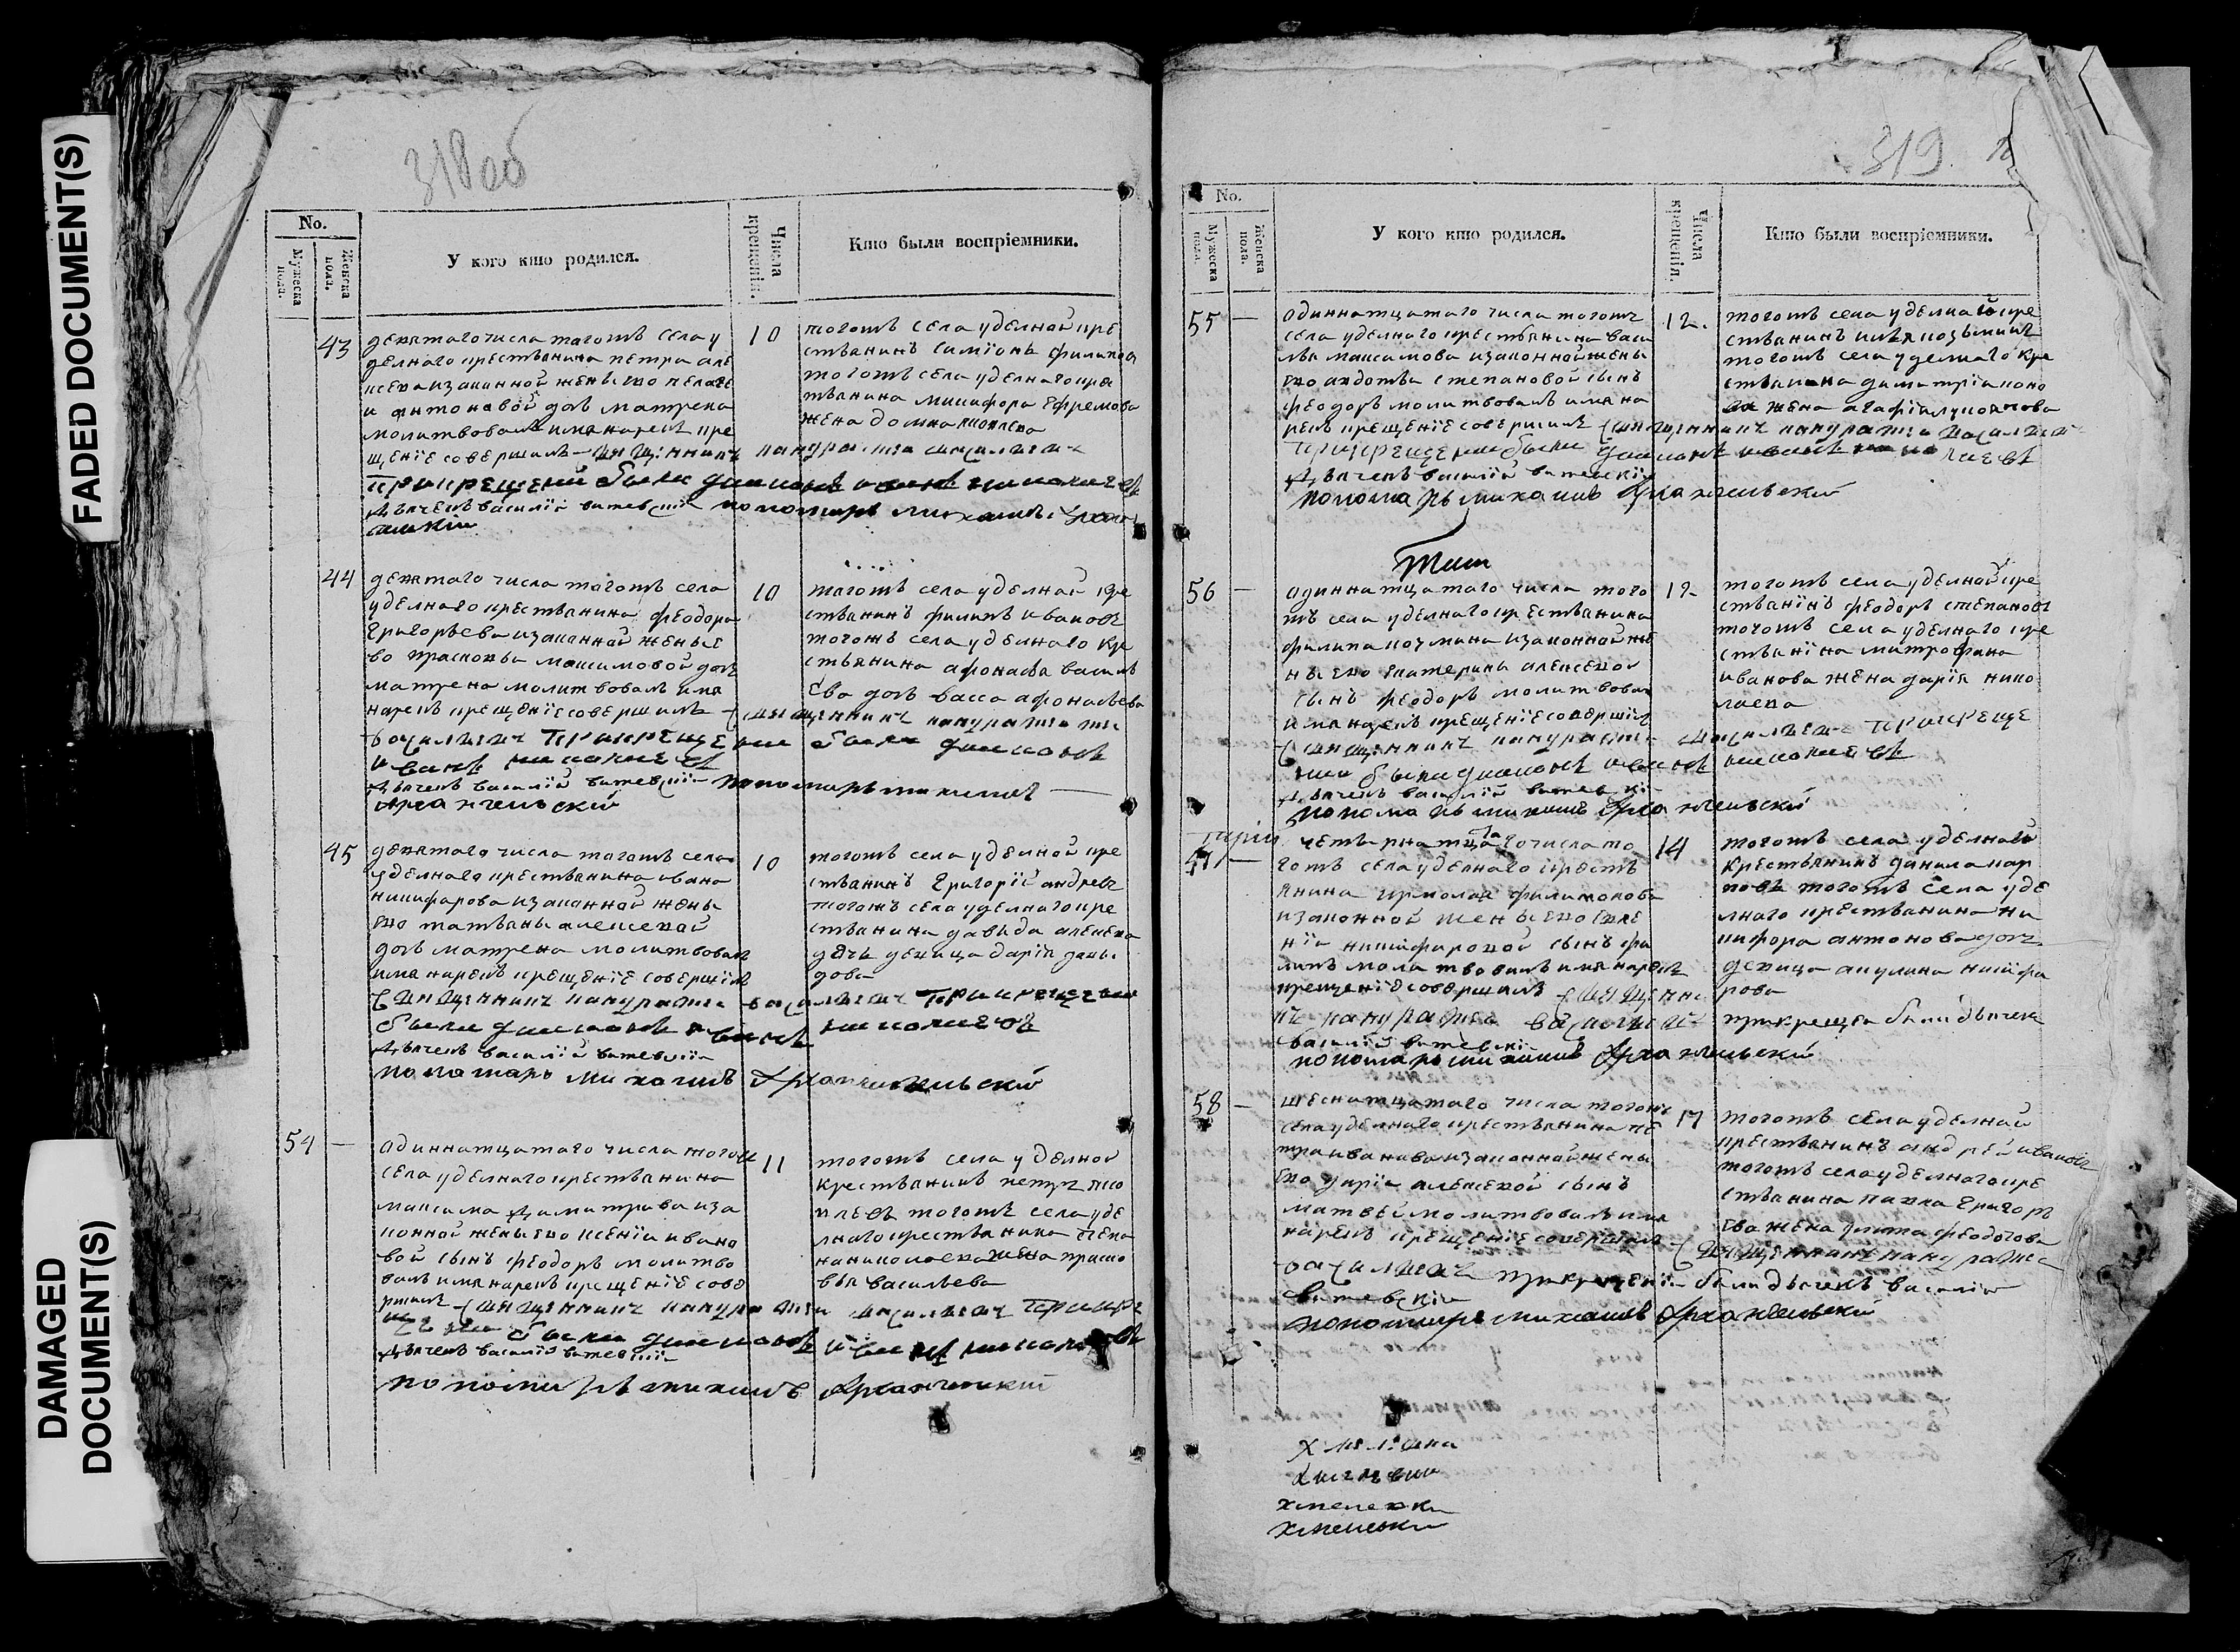 FADED DOCUMENT(S)
DAMAGED
DOCUMENT(S)
318 об
No.
Мужеска
пола.
Женска
пола.
У кого кто родился.
Числа
крещенiй.
Кто были воспрiемники.
43
девятаго числа тогожъ села у
делнаго крестьянина петра але
ксеева изаконной жены его пелаге
и антоновой дочь матрена
молитвовалъ имя нарекъ кре
щенiе совершилъ священникъ
при крещенiи были диаконъ иванъ николаевъ
дьячекъ василiй витевскiй пономарь михаилъ
10
тогожъ села уделной кре
стьянинъ симiонъ филипов
тогожъ села уделнаго кре
тьянина никифора ефремова
жена домна яковлева
44
девятаго числа тогожъ села
уделнаго крестьянина феодора
григорьева изаконной жены е
во прасковьи максимовой дочь
матрена молитвовалъ имя
нарекъ крещенiе совершилъ священникъ
при крещенiи были диаконъ
иванъ николаевъ
дьячекъ василiй витевскiй пономарь михаилъ
Архангельскiй
10
тогожъ села уделной кре
стьянинъ филипъ ивановъ
тогожъ села уделнаго кр
стьянина афонасья василь
ева дочь васса афонасьева
45
девятаго числа тогожъ села
уделнаго крестьянина ивана
никифарова изаконной жены
ево татьяны алексевой
дочь матрена молитвовалъ
имя нарекъ крещенiе совершiлъ
священникъ при крещенiи
были диаконъ иванъ николаевъ
дьячекъ василiй витевскiй
пономарь михаилъ Архангельскiй
10
тогожъ села уделной кре
стьянинъ григорiй андревъ
тогожъ села уделнаго кре
стьянина давыда алексева
дочь девица дарiя давы
дова
54 —
одиннатцатаго числа тогожъ
села уделнаго крестьянина
максима димитрева иза
конной жены ево ксенiи ивано
вой сынъ феодоръ молитво
валъ имя нарекъ крещенiе сове
ршилъ священникъ
были диаконъ иванъ николаевъ
дьячекъ василiй витевскiй
пономарь михаилъ Архангельскiй
11
тогожъ села уделной
крестьянинъ петръ яко
влевъ тогожъ села уде
лнаго крестьянина
николаева жена праско
вья васильева
319
No.
Мужеска
пола.
Женска
пола.
У кого кто родился.
Числа
крещенiя.
Кто были воспрiемники.
55 —
одиннатцатаго числа тогожъ
села уделнаго крестьянина васи
лья максимова изаконной жены
ево авдотьи степановой сынъ
феодоръ молитвовалъ имя на
рекъ крещенiе совершилъ священникъ
при крещенiи были диаконъ иванъ николаевъ
дьячекъ василiй витевскiй
пономарь михаилъ Архангельскiй
12.
тогожъ села уделнай кре
стьянинъ илья козьминъ
тогожъ села уделнаго кре
стьянина димитрiя
жена агафiя
56 —
одиннатцатаго числа того
жъ села уделнаго крестьянина
филипа козмина изаконной же
ны ево екатерины алексевой
сынъ феодоръ молитвовал
имя нарекъ крещенiе совершiлъ
священникъ при креще
нии были диаконъ иванъ николаевъ
дьячекъ василiй витевскi
пономарь михаилъ Архангельскiй
12
тогожъ села уделной кре
стьянiнъ феодоръ степановъ
тогожъ села уделнаго кре
стьянiна митрофана
иванова жена дарiя нико
лаева
57 —
четырнатцатаго числа то
гожъ села уделнаго кресть
янина ермолая филимонова
изаконной жены ево евге
нiи никифаровой сынъ фи
липъ молитвовалъ имя нарекъ
крещенiе совершилъ священни
къ
василiй витевскiй
пономарь михаилъ Архангельскiй
14
тогожъ села уделнай
крестьянинъ данила кар
повъ тогожъ села уде
лнаго крестьянина ни
кифора антонова дочь
девица акулина никифа
рова
при крещенiи были дьячекъ
58 —
шеснатцатаго числа тогожъ
села уделнаго крестьянина пе
тра иванова изаконной жены
ево дарiи алексевой сынъ
матвей молитвовалъ имя
нарекъ крещенiе совершилъ
священникъ
при крещенiи были дьячекъ василiй
витевскiй
пономарь михаилъ Архангельскiй
17
тогожъ села уделнай
крестьянинъ андрей ивановъ
тогожъ села уделнаго кре
стьянина павла григорь
ева жена улита федотова